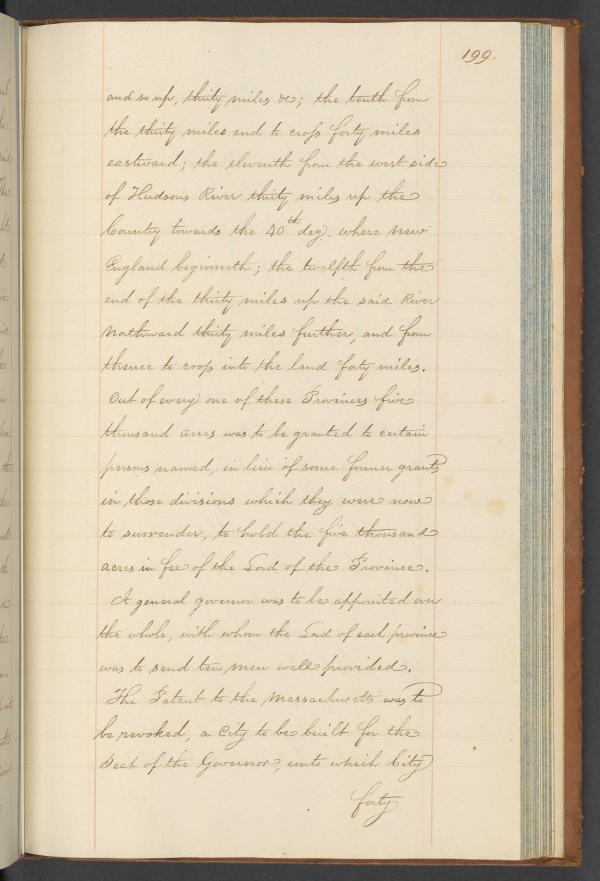 199.
and so up, thirty miles &c; the tenth from
the thirty miles end to cross forty miles
eastward; the eleventh from the west side
of Hudsons River thirty miles up the
Country towards the 40th deg. where New
England beginneth; the twelfth from the
end of the thirty miles up the said River
Northward thirty miles further, and from
thence to cross into the land forty miles.
Out of every one of these Provinces five
thousand acres was to be granted to certain
persons named, in lieu of some former grants
in those divisions which they were now
to surrender, to hold the five thousand
acres in fee of the Lord of the Province.
A general governor was to be appointed over
the whole, with whom the Lord of each province
was to send ten men well provided.
The Patent to the Massachusetts was to
be revoked, a City to be built for the
Seat of the Governor, unto which City
forty